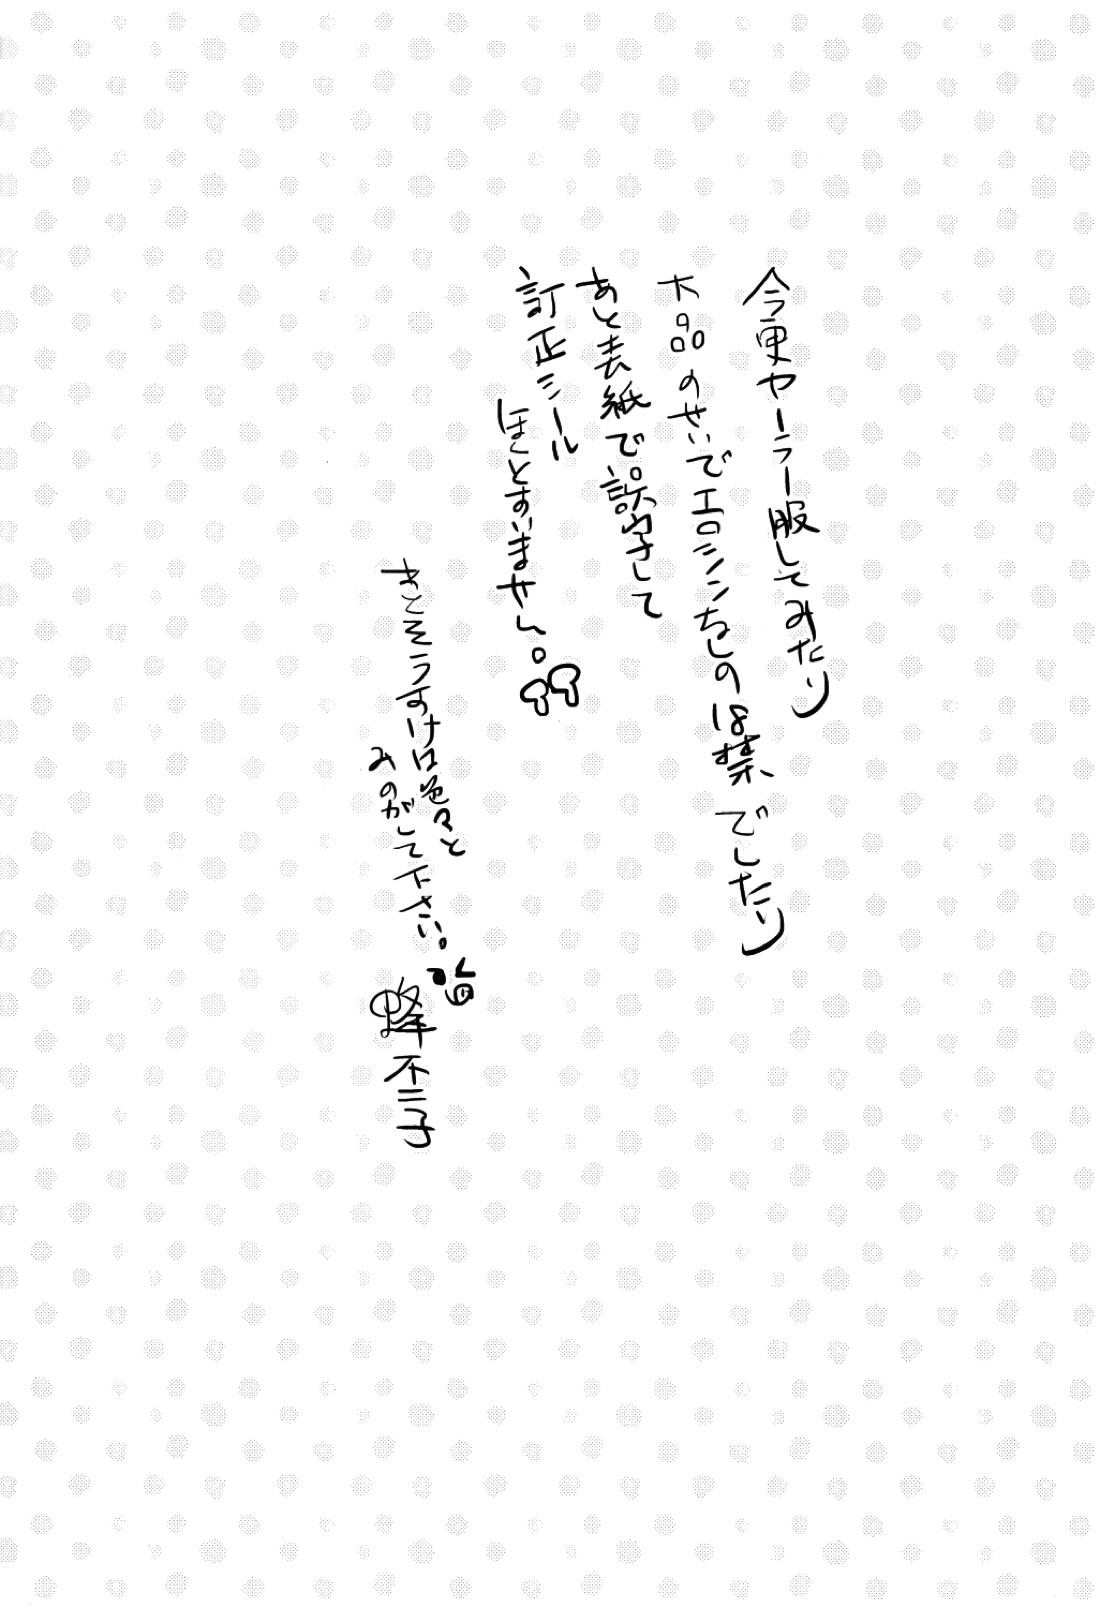 今更セーラー服してみたり
下品のせいでエロシンなしの18禁でしたり
あと表紙で誤字して
訂正シール
ほんとすいません。
きこそうすけは色々と
みのがして下さい。
蜂不二子